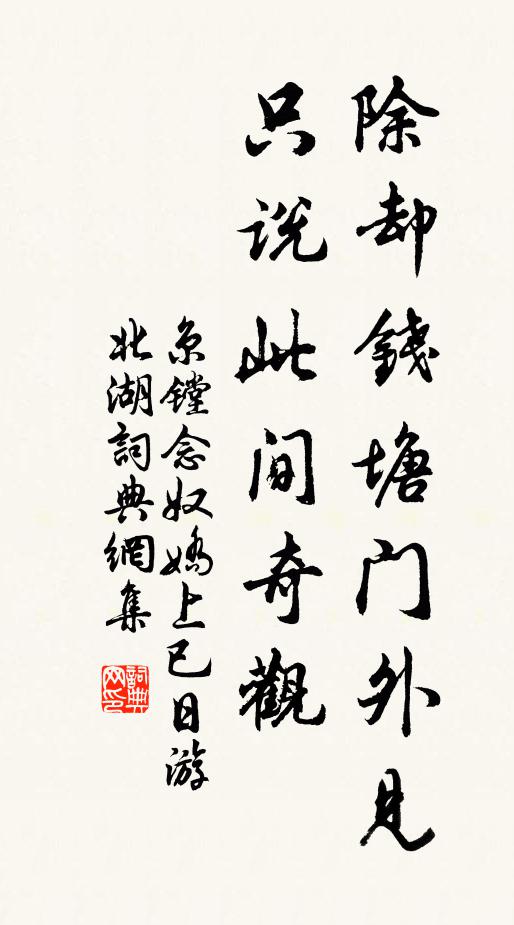 除却錢塘门外見
只说此间奇觀
京鏜念奴嬌上巳日游
北湖詞典網集
詞典
网印